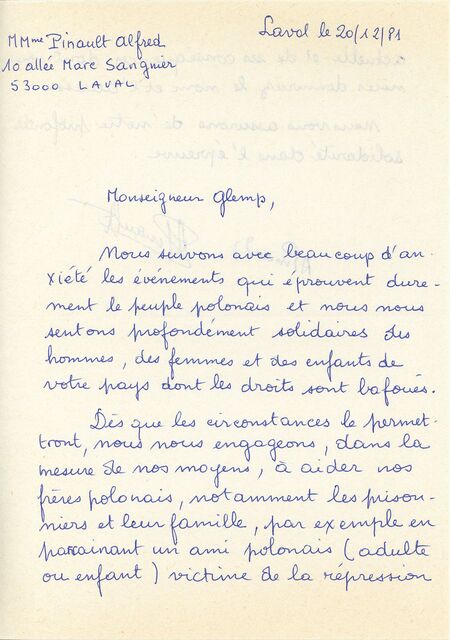 Laval le 20/12/81
M Mme Pinault Alfred
10 allée Marc Sangnier
53000 LAVAL
Monseigneur Glemp,
Nous suivons avec beaucoup d'an-
xiété les événements qui éprouvent dure-
ment le peuple polonais et nous nous
sentons profondément solidaires des
hommes, des femmes et des enfants de
votre pays dont les droits sont bafoués.
Dès que les circonstances le permet-
tront, nous nous engageons, dans la
mesure de nos moyens, à aider nos
frères polonais, notamment les prison-
niers et leur famille, par exemple en
parrainant un ami polonais (adulte
ou enfant) victime de la répression